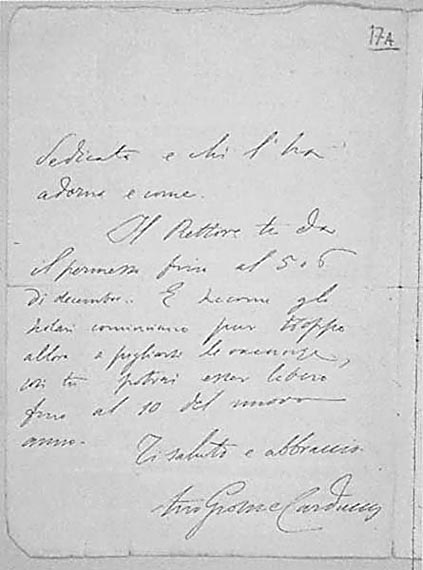 17A
dedicato e chi l'ha
adorno e come.
Il Rettore ti dà
il permesso fino al 5 o 6
di decembre. E siccome gli
scolari cominciano pur troppo
allora a pigliarsi le vacanze,
così tu potrai esser libero
fino al 10 del nuovo
anno.
Ti saluto e abbraccio
tuo Giosue Carducci